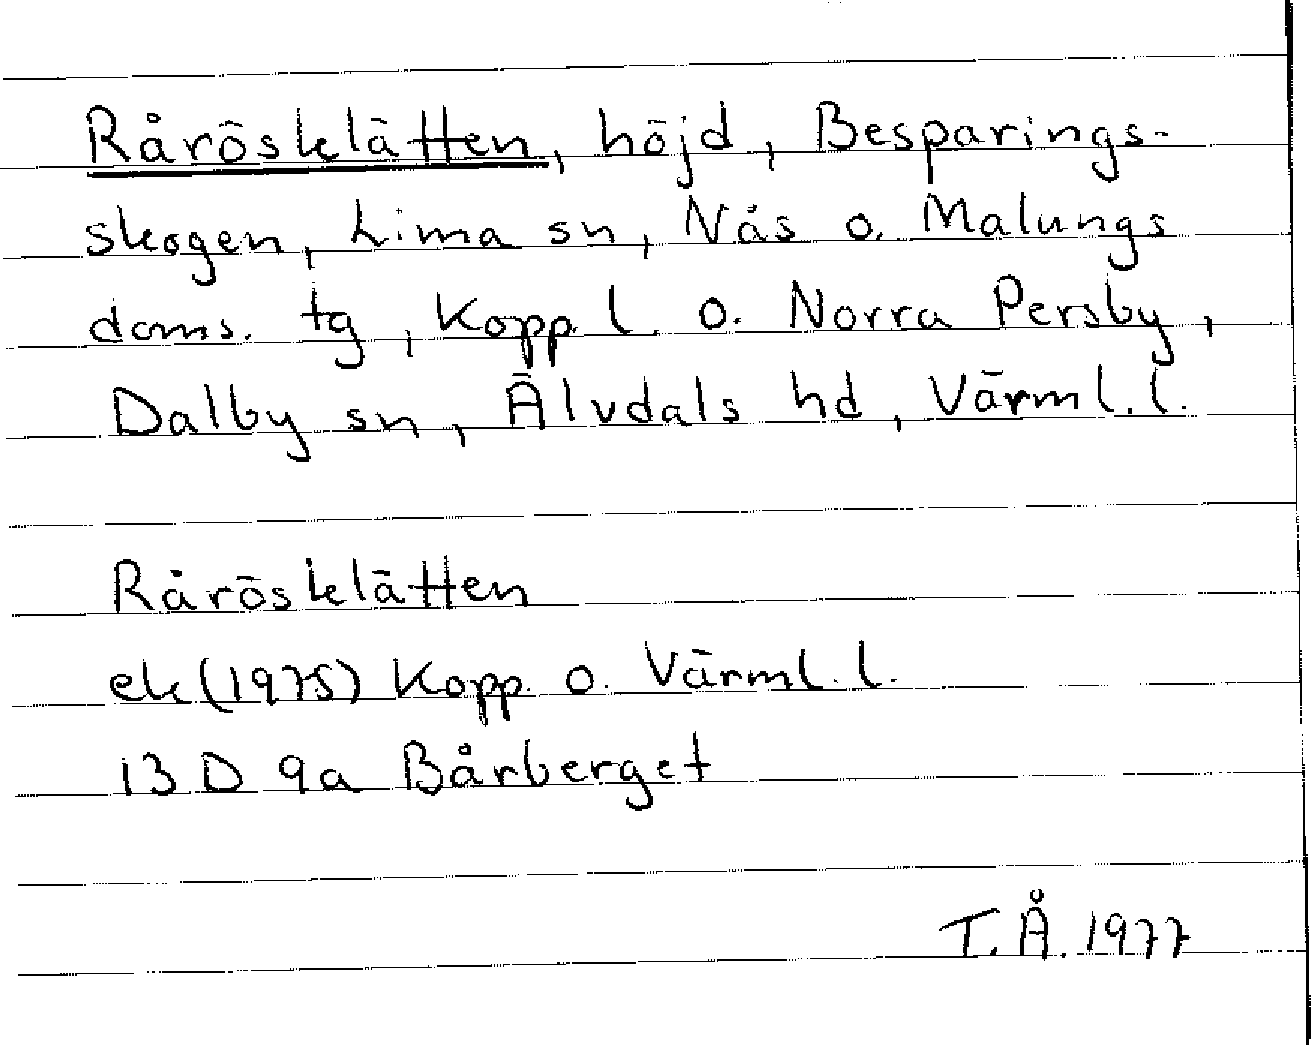 Rårösklätten, höjd, Besparings-
skogen, Lima sn, Nås o. Malungs
doms. tg, Kopp. l. o. Norra Persby,
Dalby sn, Älvdals hd, Värml. l.
Rårösklätten
ek (1975) Kopp. o. Värml. l.
13 D 9a Bårberget
T. Å. 1977